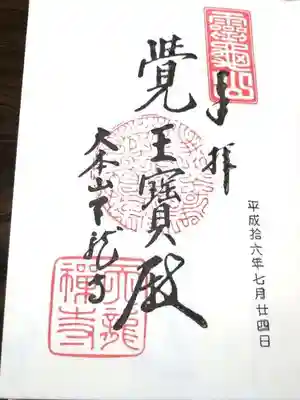 靈龜山
奉拝
平成拾六年七月廿四日
覺王寶殿
大本山天龍寺
天龍禪寺